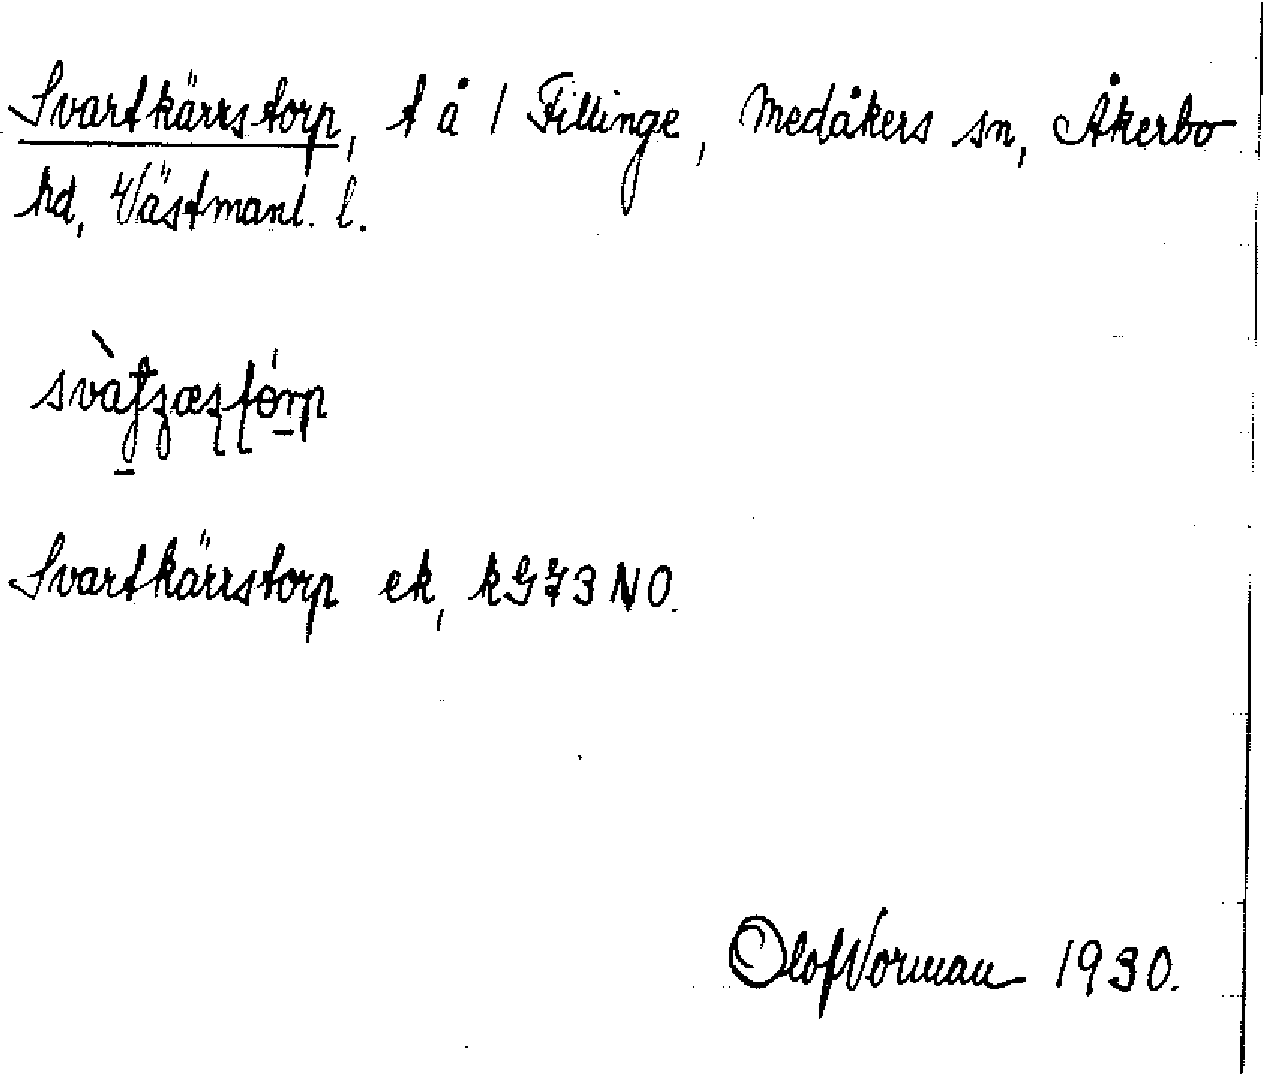 Svartkärrstorp, t å 1 Fillinge, Medåkers sn, Åkerbo
hd, Västmanl. l.
Svartkärrstorp ek, kG73NO.
Olof Norman 1930.